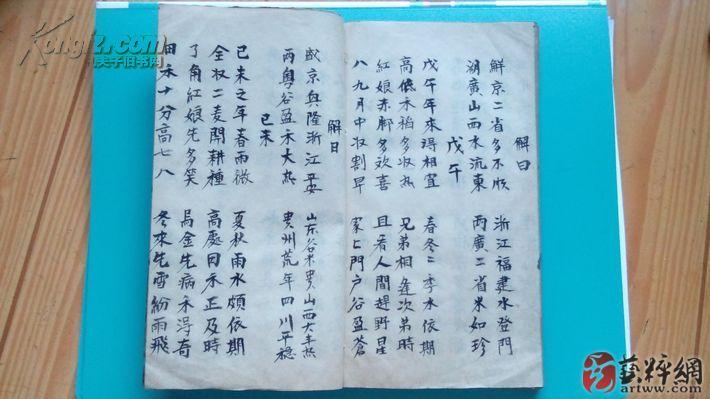 解曰
鮮京二省多不順 浙江福建水登門
湖廣山西水流東 兩廣二省米如珍
戊午
戊午年來得相宜 春冬二季水依期
高低禾稻多收热 兄弟相逢次弟時
紅娘赤腳多欢喜 且看人間趕野星
八九月中収割早 家上門户谷盈蒼
解曰
盛京興隆浙江平安 山东谷米贵山西大丰热
兩粵谷盈禾大热 贵州荒年四川平穏
已未
已未之年春雨微 夏秋雨水頗依期
全収二麦開耕種 高處田禾正及時
了角紅娘先多笑 烏金先病禾得奇
田禾十分高七八 冬來先雪紛雨飛
Kongfz.com
孔夫子旧书网
藝粹網
artww.com